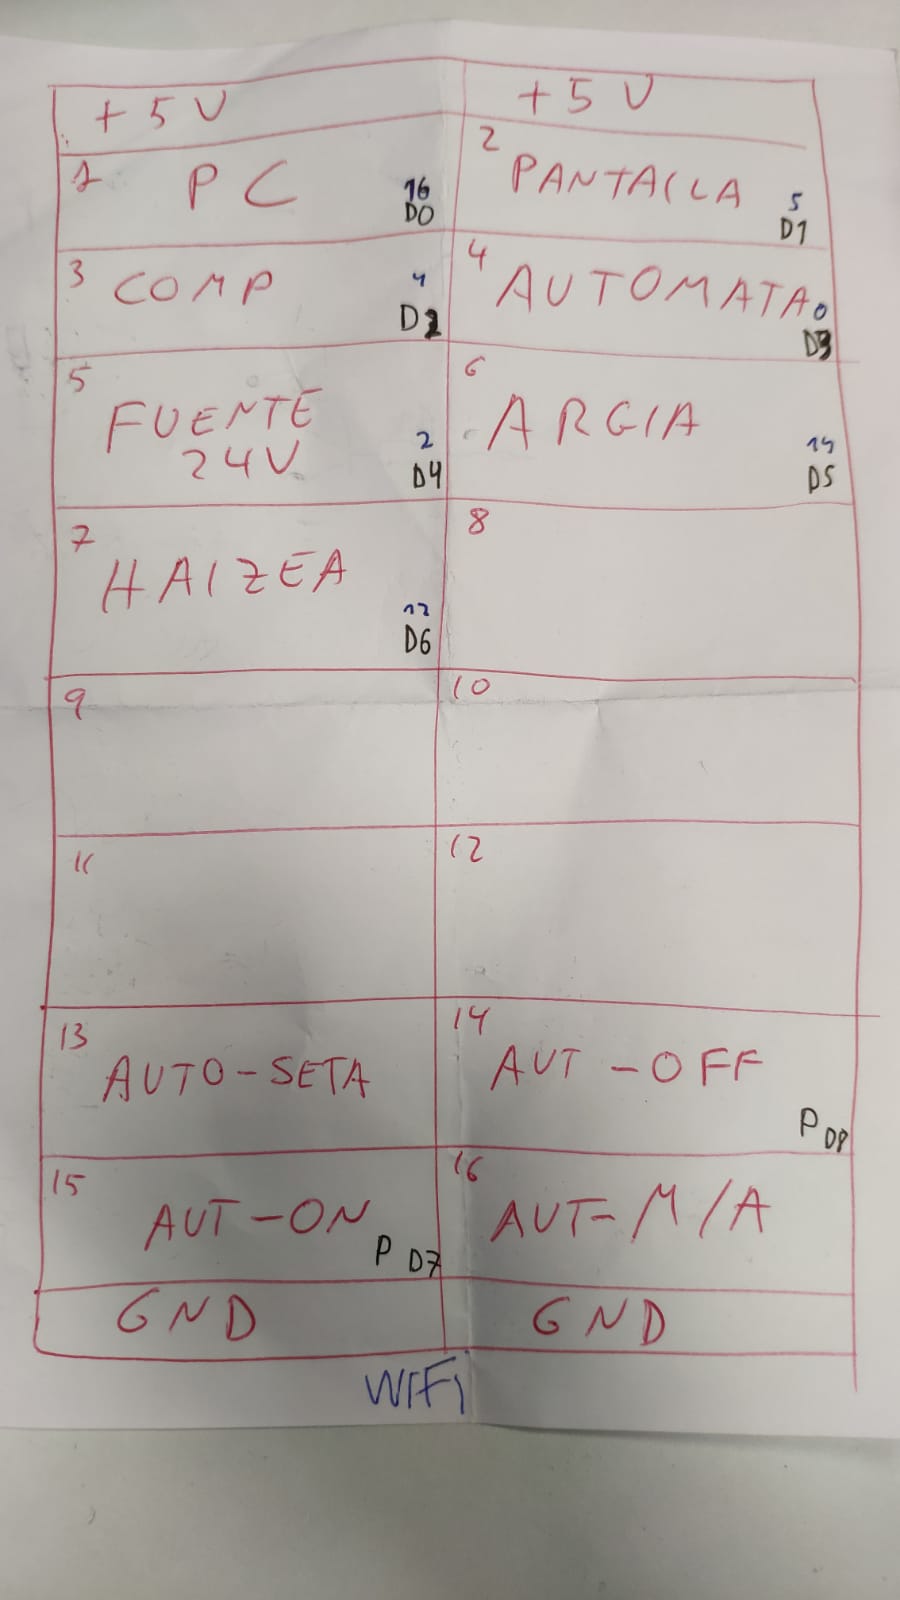 +5V
+5V
1 PC 16 D0
2 PANTALLA 5 D1
3 COMP 4 D2
4 AUTOMATA 0 D3
5 FUENTE 24V 2 D4
6 ARGIA 14 D5
7 HAIZEA 12 D6
8
9
10
11
12
13 AUTO-SETA
14 AUT-OFF P D8
15 AUT-ON P D7
16 AUT-M/A
GND
GND
WIFi